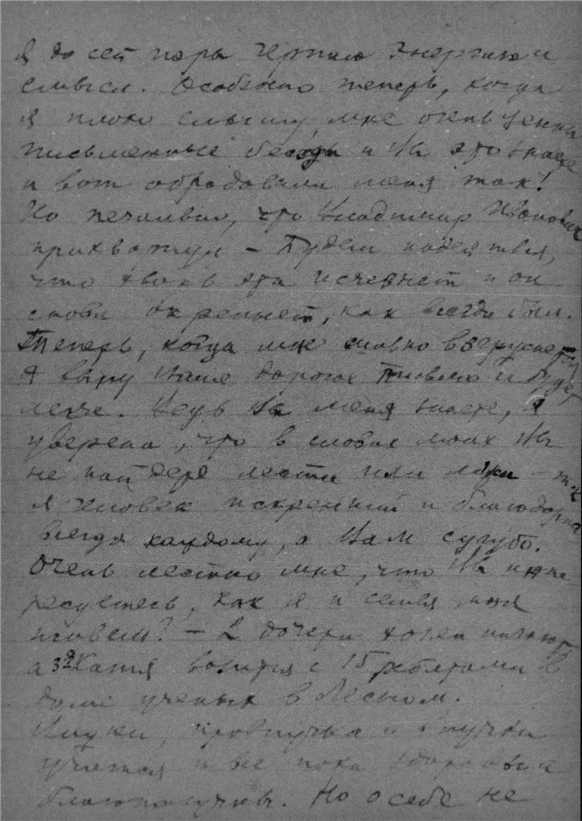 Я до сей поры черпаю энергию и
смысл. Особенно теперь, когда
я плохо слышу, мне очень ценны
письменные беседы и Вы это знаете
и вот обрадовали меня так!
Но печально, что Владимир Иванович
прихворнул – Будем надеяться,
что хворь эта исчезнет и он
снова окрепнет, как всегда был.
Теперь, когда мне
я выну Ваше дорогое письмо и будет
легче. Ведь Вы меня знаете, я
уверена, что в словах моих Вы
не найдете лести или лжи –
я человек искренний и благодарна
всегда каждому, а Вам сугубо.
Очень лестно мне, что Вы инте-
ресуетесь, как я и семья моя
живем? – 2 дочери
а 3я Катя возится с 15 ребятами в
доме ученых в Лесном.
Внуки, и внучки
учатся и все пока здоровы и
благополучны. Но о себе не